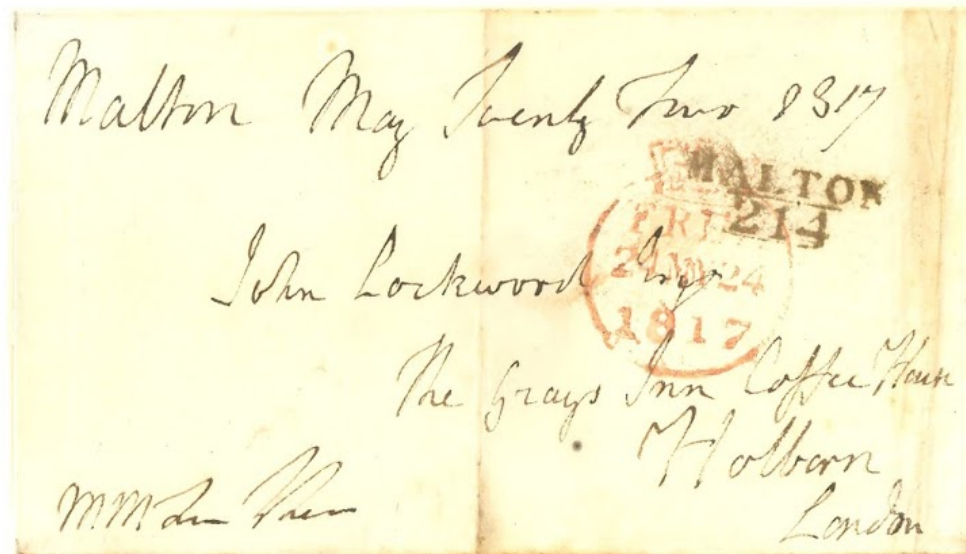 Malton May Twenty Two 1817
MALTON
214
FREE
24 MY 24
1817
John Lockwood Esqr
The Grays Inn Coffee House
Holborn
London